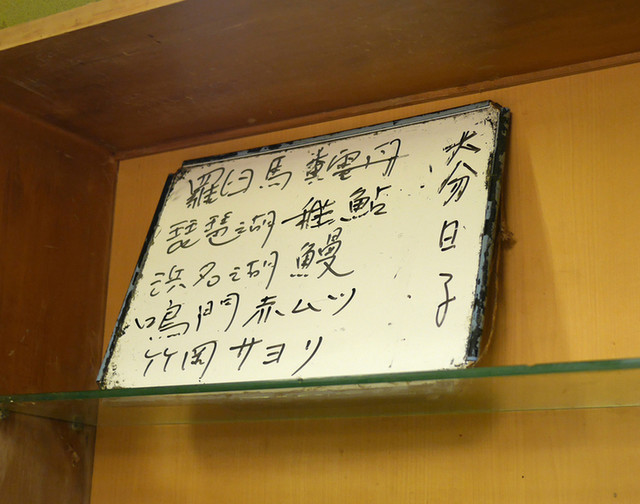 羅臼馬糞雲丹
琵琶湖 稚鮎
浜名湖 鰻
鳴門 赤ムツ
竹岡 サヨリ
大分日子